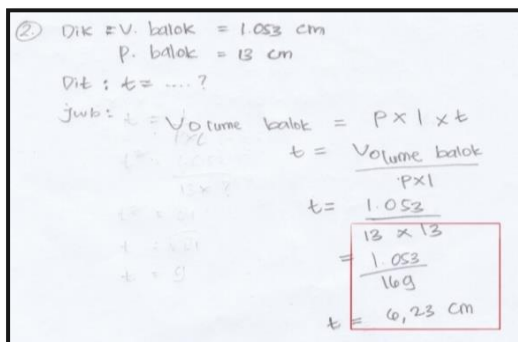 2. Dik = V. balok = 1.053 cm
P. balok = 13 cm
Dit : t = .... ?
jwb : Volume balok = P x l x t
t = Volume balok
P x l
t = 1.053
13 x 13
= 1.053
169
t = 6,23 cm